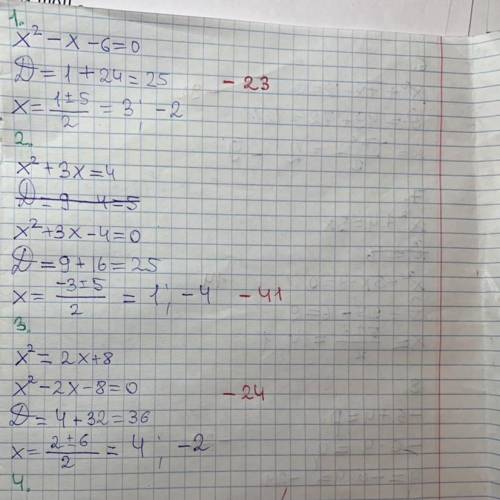 1.
x² - x - 6 = 0
D = 1 + 24 = 25
x = (1 ± 5)/2 = 3 ; -2
-23
2.
x² + 3x = 4
D = 9 - 4 = 5
x² + 3x - 4 = 0
D = 9 + 16 = 25
x = (-3 ± 5)/2 = 1 ; -4
-41
3.
x² = 2x + 8
x² - 2x - 8 = 0
D = 4 + 32 = 36
x = (2 ± 6)/2 = 4 ; -2
-24
4.